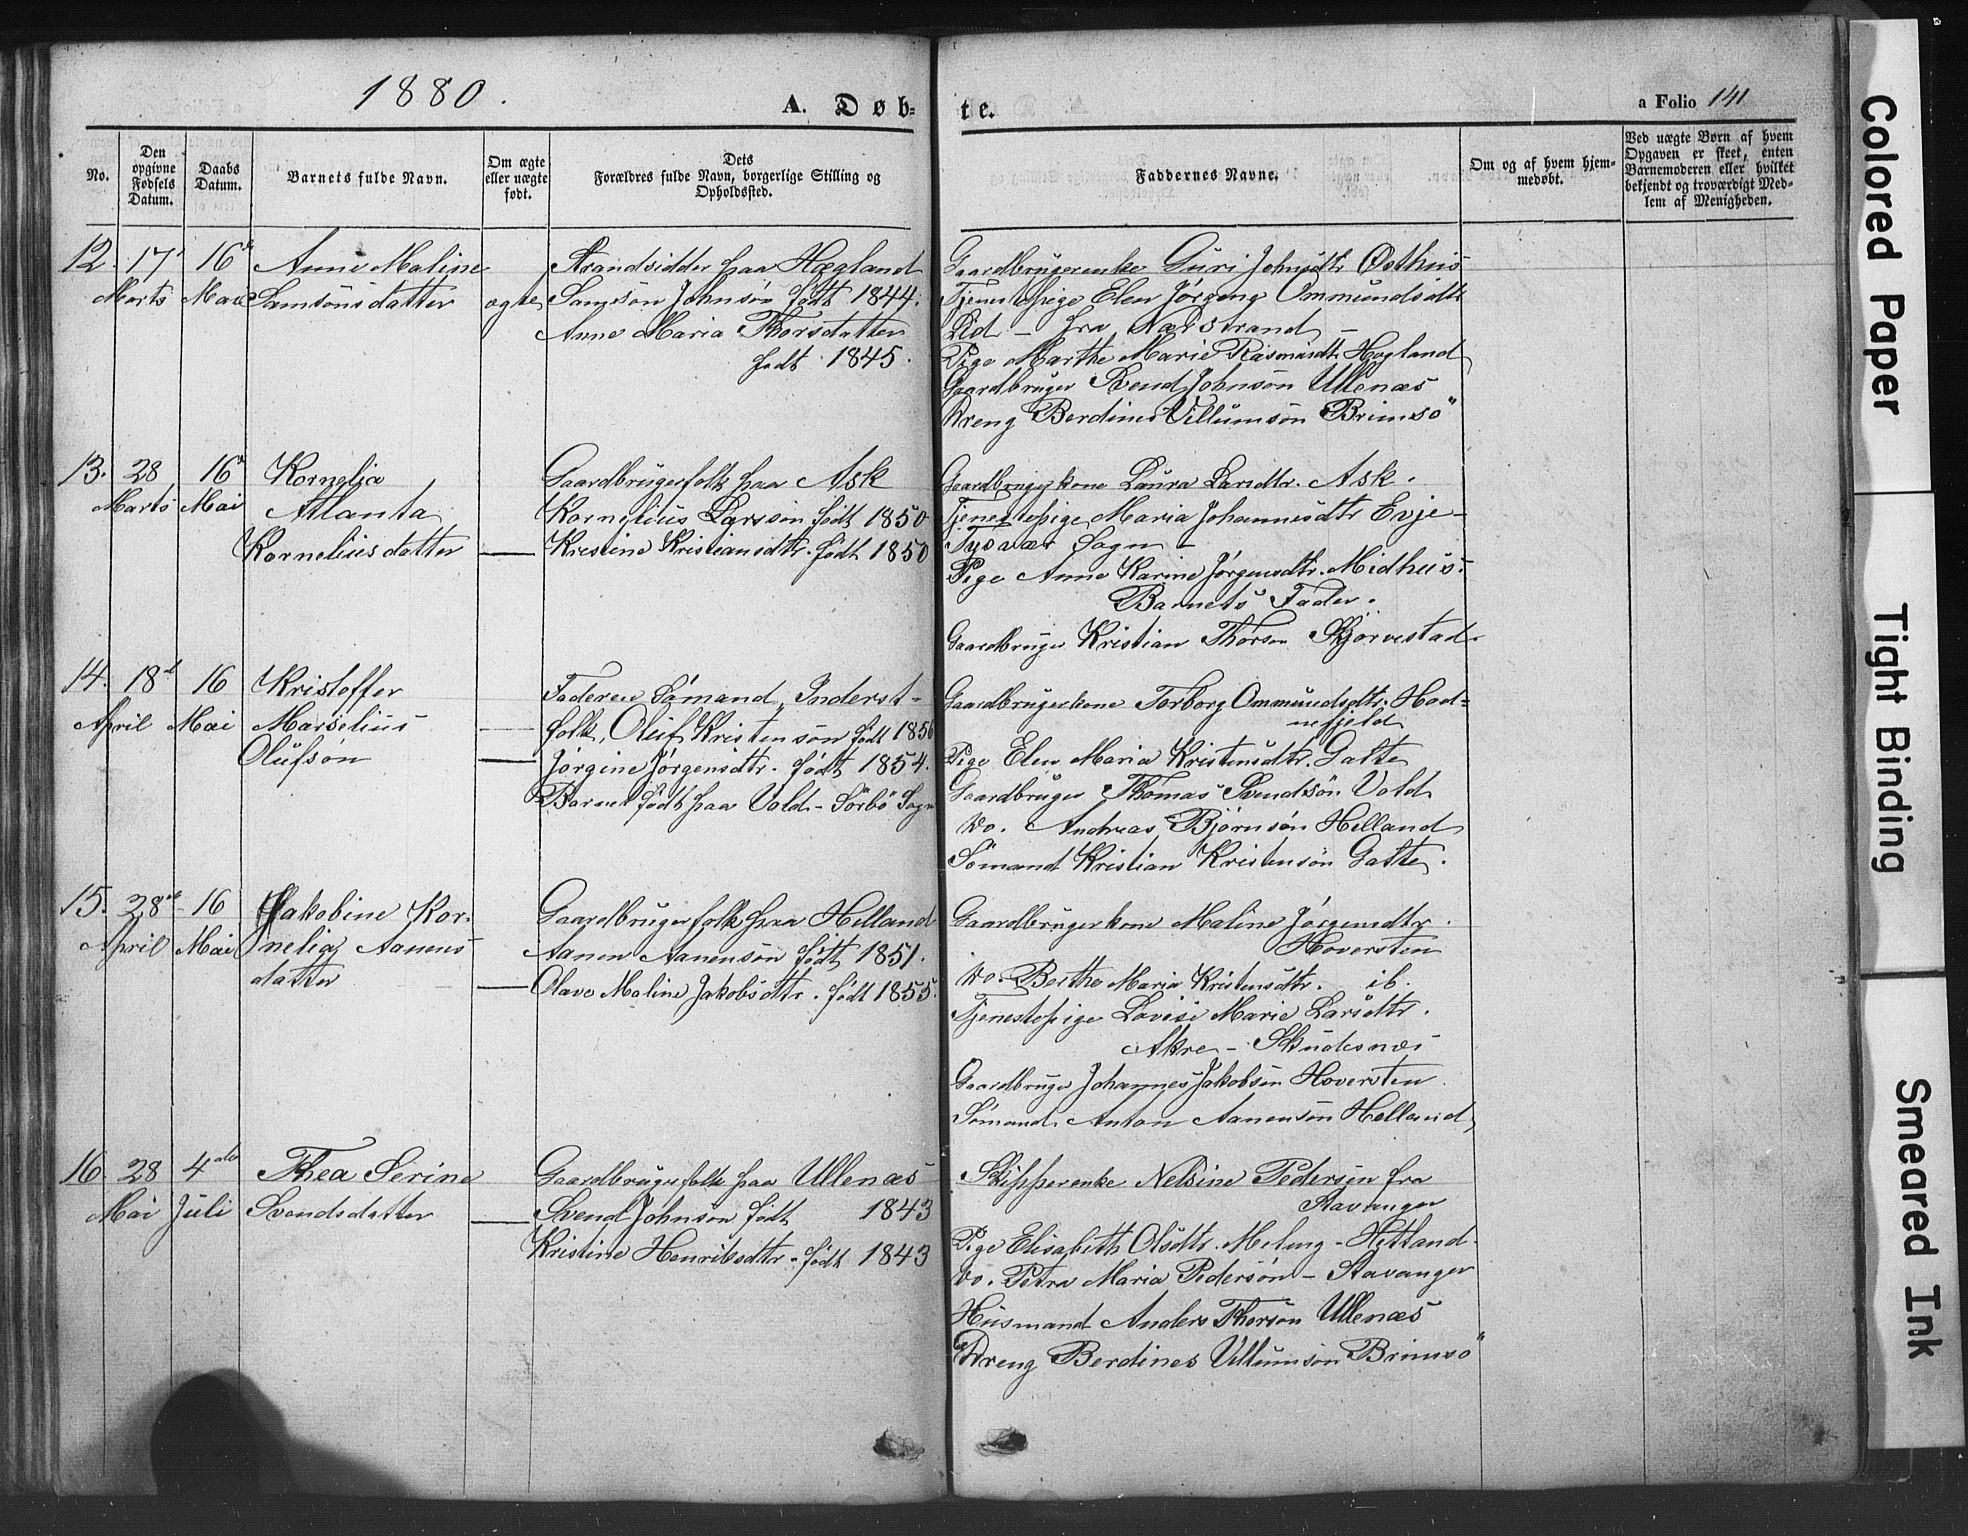 1880.
A. Døb-
te.
a Folio 141
No.
Den
opgivne
Fødsels
Datum.
Daabs
Datum.
Barnets fulde Navn.
Om ægte
eller uægte
født.
Dets
Forældres fulde Navn, borgerlige Stilling og
Opholdssted.
Faddernes Navne.
Om og af hvem hjem-
medøbt.
Ved uægte Børn af hvem
Opgaven er skeet, enten
Barnemoderen eller hvilket
bekjendt og troværdigt Med-
lem af Menigheden.
12. 17 16 Anne Maline
Marts Mai Samsonsdatter ægte
Strandsidder paa Hægland
Samson Johnson født 1844.
Anne Maria Thorsdatter
født 1845.
Gaardbrugerenke Guri Johnsdtr Østhus
Tjenestepige Elen Jørgena Ommundsdtr
Lid - fra Nærstrand -
Pige Marthe Marie Rasmusdtr Hægland
Gaardbruger Svend Johnson Ullenæs
Dreng Berdines Villumson Brimsö
13. 28 16 Kornelia
Marts Mai Atlanta
Korneliusdatter —
Gaardbrugerfolk paa Ask
Kornelius Larson født 1850
Kristine Kristiansdtr. født 1850
Gaardbrugerkone Laura Larsdtr. Ask.
Tjenestepige Maria Johannesdtr Evje -
Tysvær Sogn -
Pige Anne Karine Jørgensdtr. Midhus.
Barnets Fader.
Gaardbruger Kristian Thorsen Skjorvestad.
14. 18d 16 Kristoffer
April Mai Marselius —
Olufsøn —
Faderen Sømand, Inderst-
folk, Oluf Kristensøn født 1856
Jørgine Jørgensdtr. født 1854.
Barnet født paa Vold - Sörbö Sogn
Gaardbrugerkone Torborg Ommundsdtr. Hod=
nefjeld
Pige Elen Maria Kristensdtr. Gatte
Gaardbruger Thomas Svendsön Vold
Do. Andreas Bjørnsøn Helland
Sömand Kristian Kristensön Gatte.
15. 28de 16 Jakobine Kor-
April Mai nelia Aanens
datter —
Gaardbrugerfolk paa Helland
Aanen Aanensøn født 1851.
Olave Maline Jakobsdtr. født 1855.
Gaardbrugerkone Maline Jørgensdtr.
Hoversten
Do. Berthe Maria Kristensdtr. ib.
Tjenestepige Lovise Marie Larsdtr.
Akre - Skudesnæs
Gaardbruger Johannes Jakobsen Hoversten
Sømand Anton Aanensøn Helland
16. 28 4de Thea Serine
Mai Juli Svendsdatter —
Gaardbrugerfolk paa Ullenæs
Svend Johnson født 1843
Kristine Henriksdtr. født 1843
Skipperenke Nelsine Pedersen fra
Stavanger
Pige Elisabeth Olsdtr. Meling - Hetland
Do. Petra Maria Pedersøn - Stavanger
Husmand Anders Thorson Ullenæs
Dreng Berdines Villumson Brimsö
Colored Paper
Tight Binding
Smeared Ink